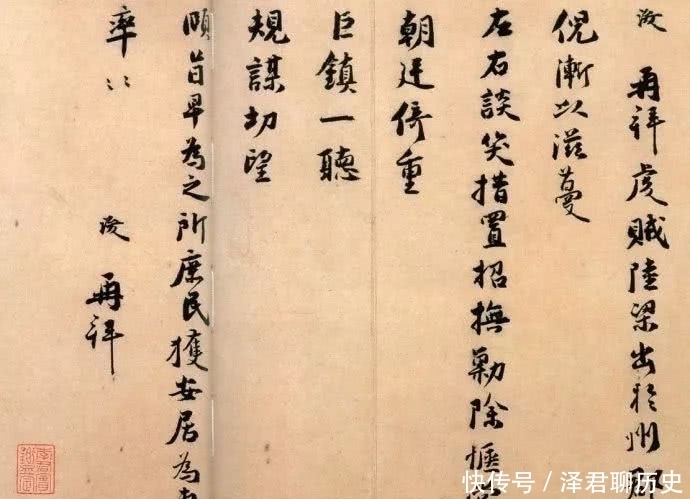 浚 再拜虔賊陸梁出於州
倪漸以滋蔓
左右談笑措置招撫勦除
朝廷倚重
巨鎮一聽
規謀切望
頤旨早為之所庶民獲安居為
率〻
浚 再拜
快传号／泽君聊历史